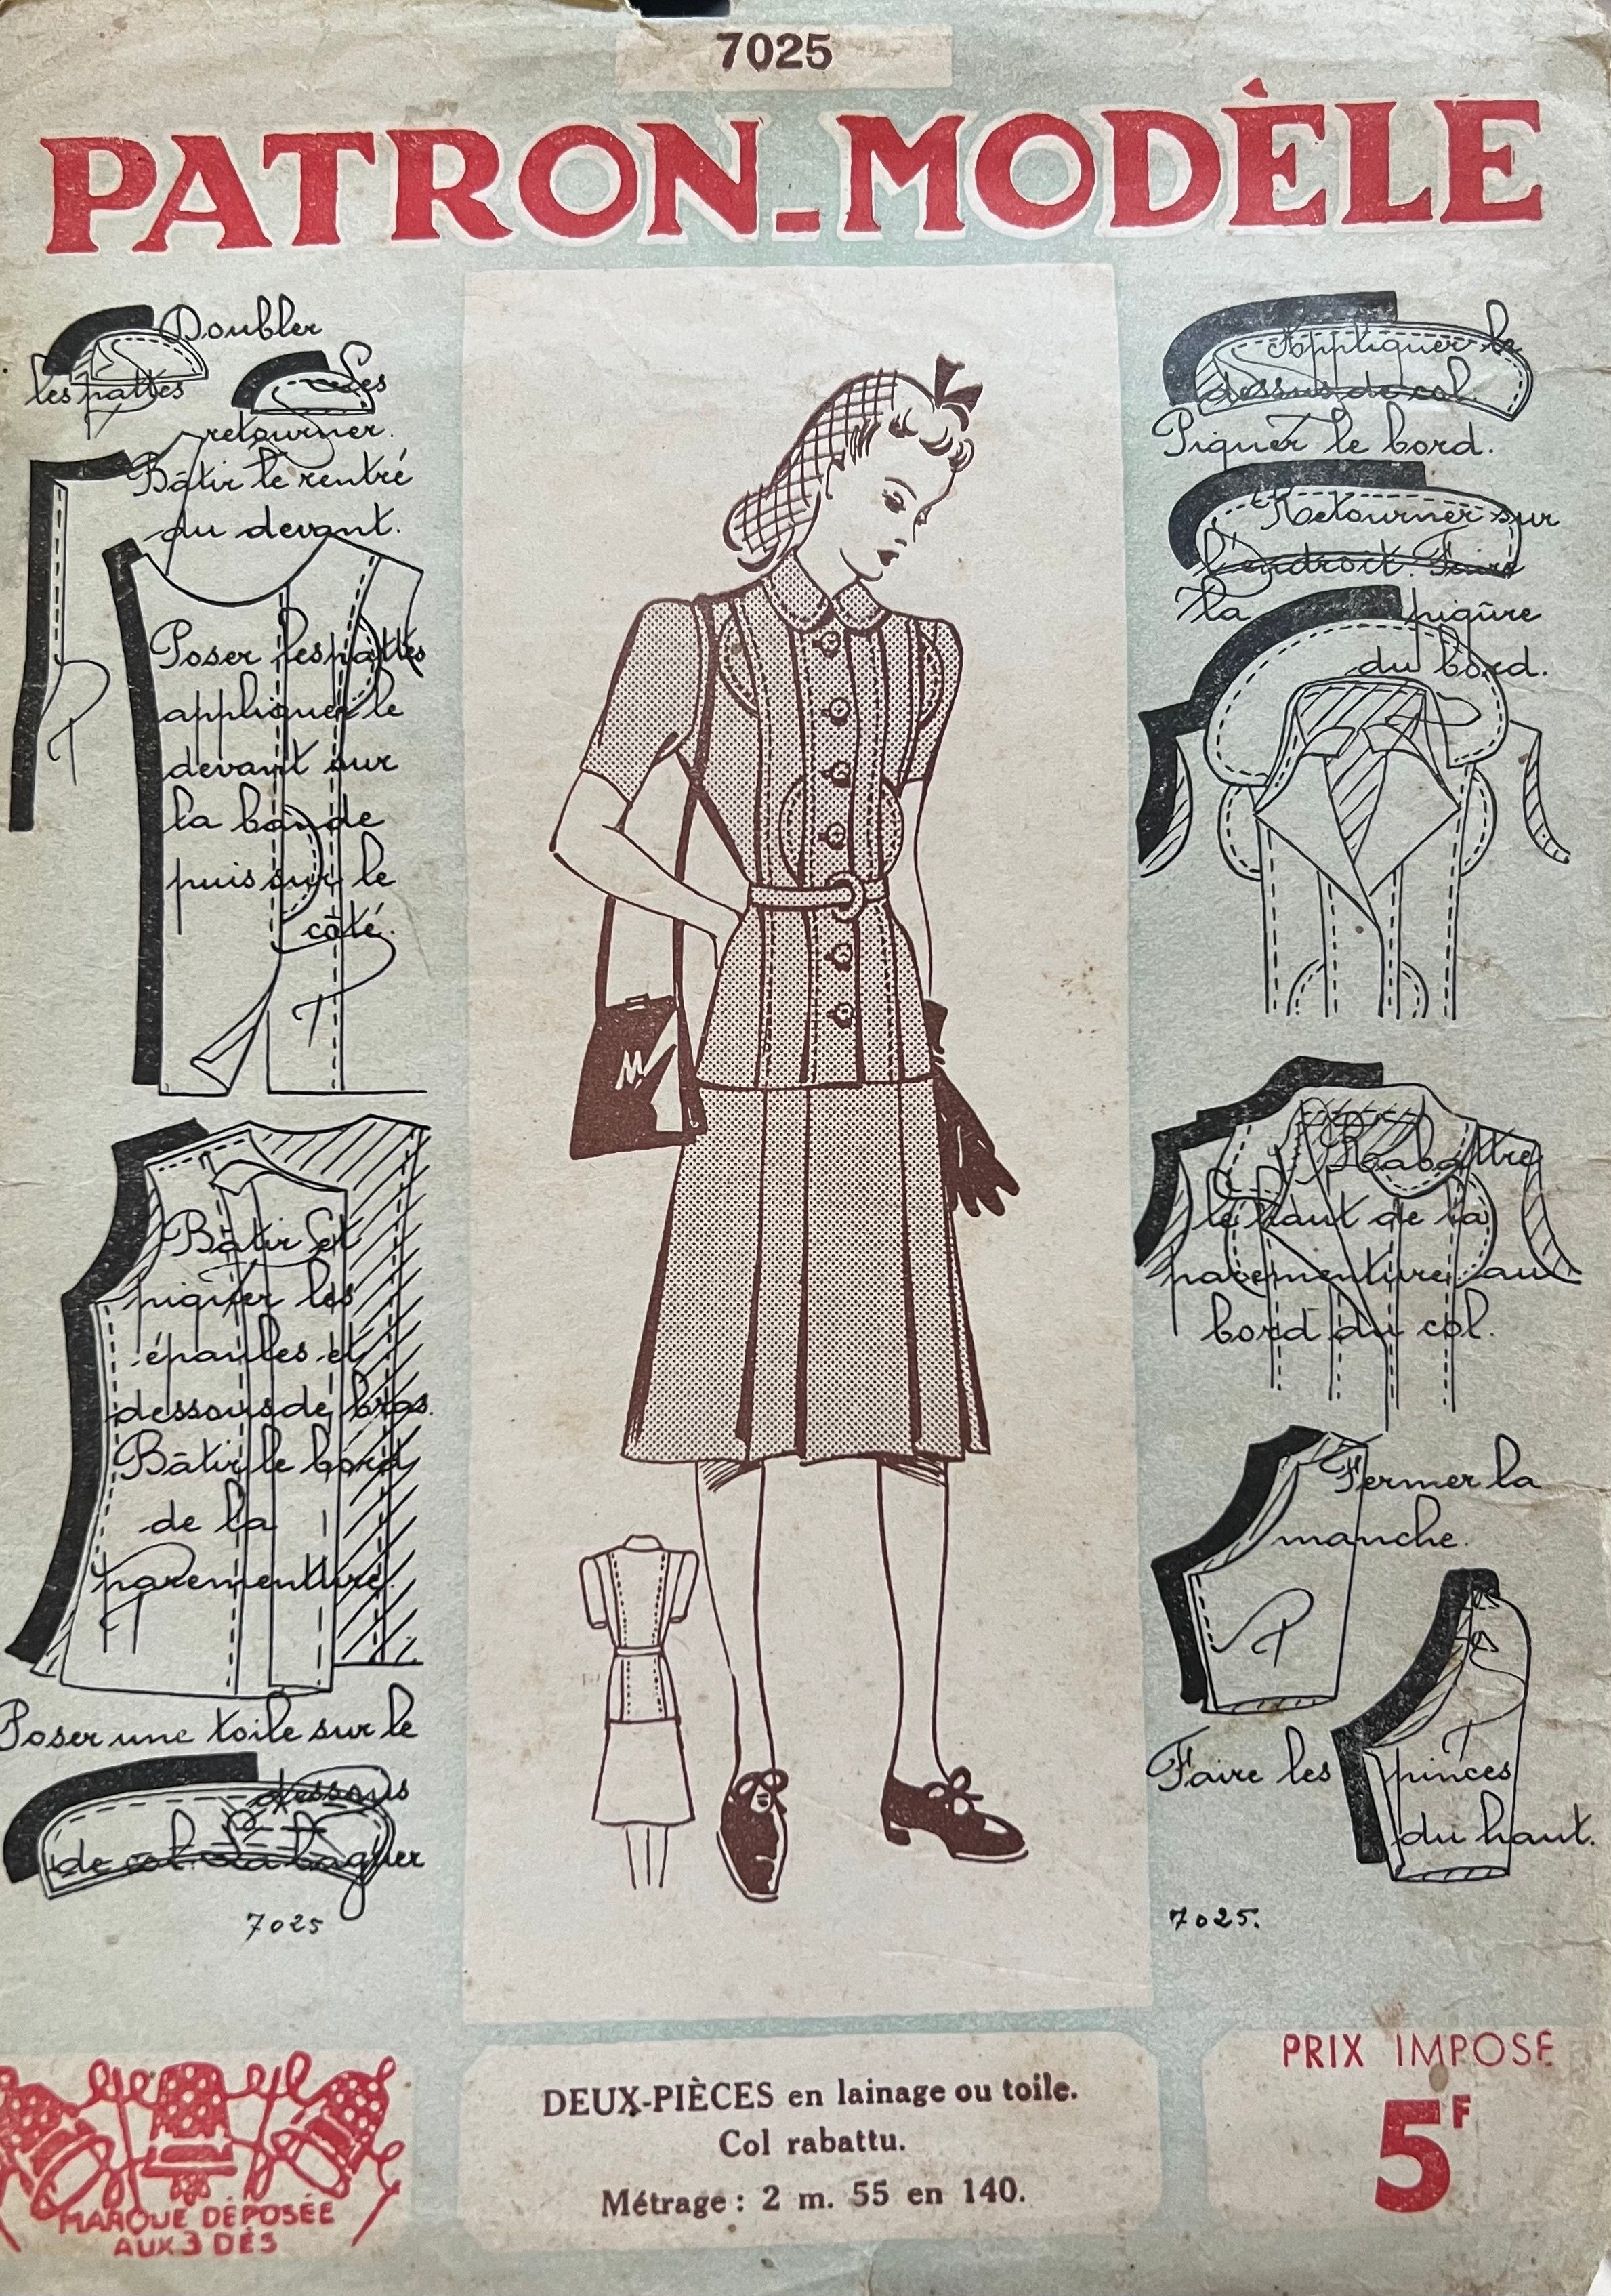 7025
PATRON-MODÈLE
Doubler
les pattes
Les
retourner.
Bâtir le rentré
du devant.
Poser les pattes
appliquer le
devant sur
la bande
puis sur le
côté.
Bâtir et
piquer les
épaules et
dessous de bras.
Bâtir le bord
de la
parementure.
Poser une toile sur le
dessous
de col. La baguer
7025
Appliquer le
dessus de col.
Piquer le bord.
Retourner sur
l'endroit. Faire
la piqûre
du bord.
Rabattre
le haut de la
parementure au
bord du col.
Fermer la
manche.
Faire les pinces
du haut.
7025.
M
MARQUE DÉPOSÉE
AUX 3 DÉS
DEUX-PIÈCES en lainage ou toile.
Col rabattu.
Métrage : 2 m. 55 en 140.
PRIX IMPOSÉ
5F